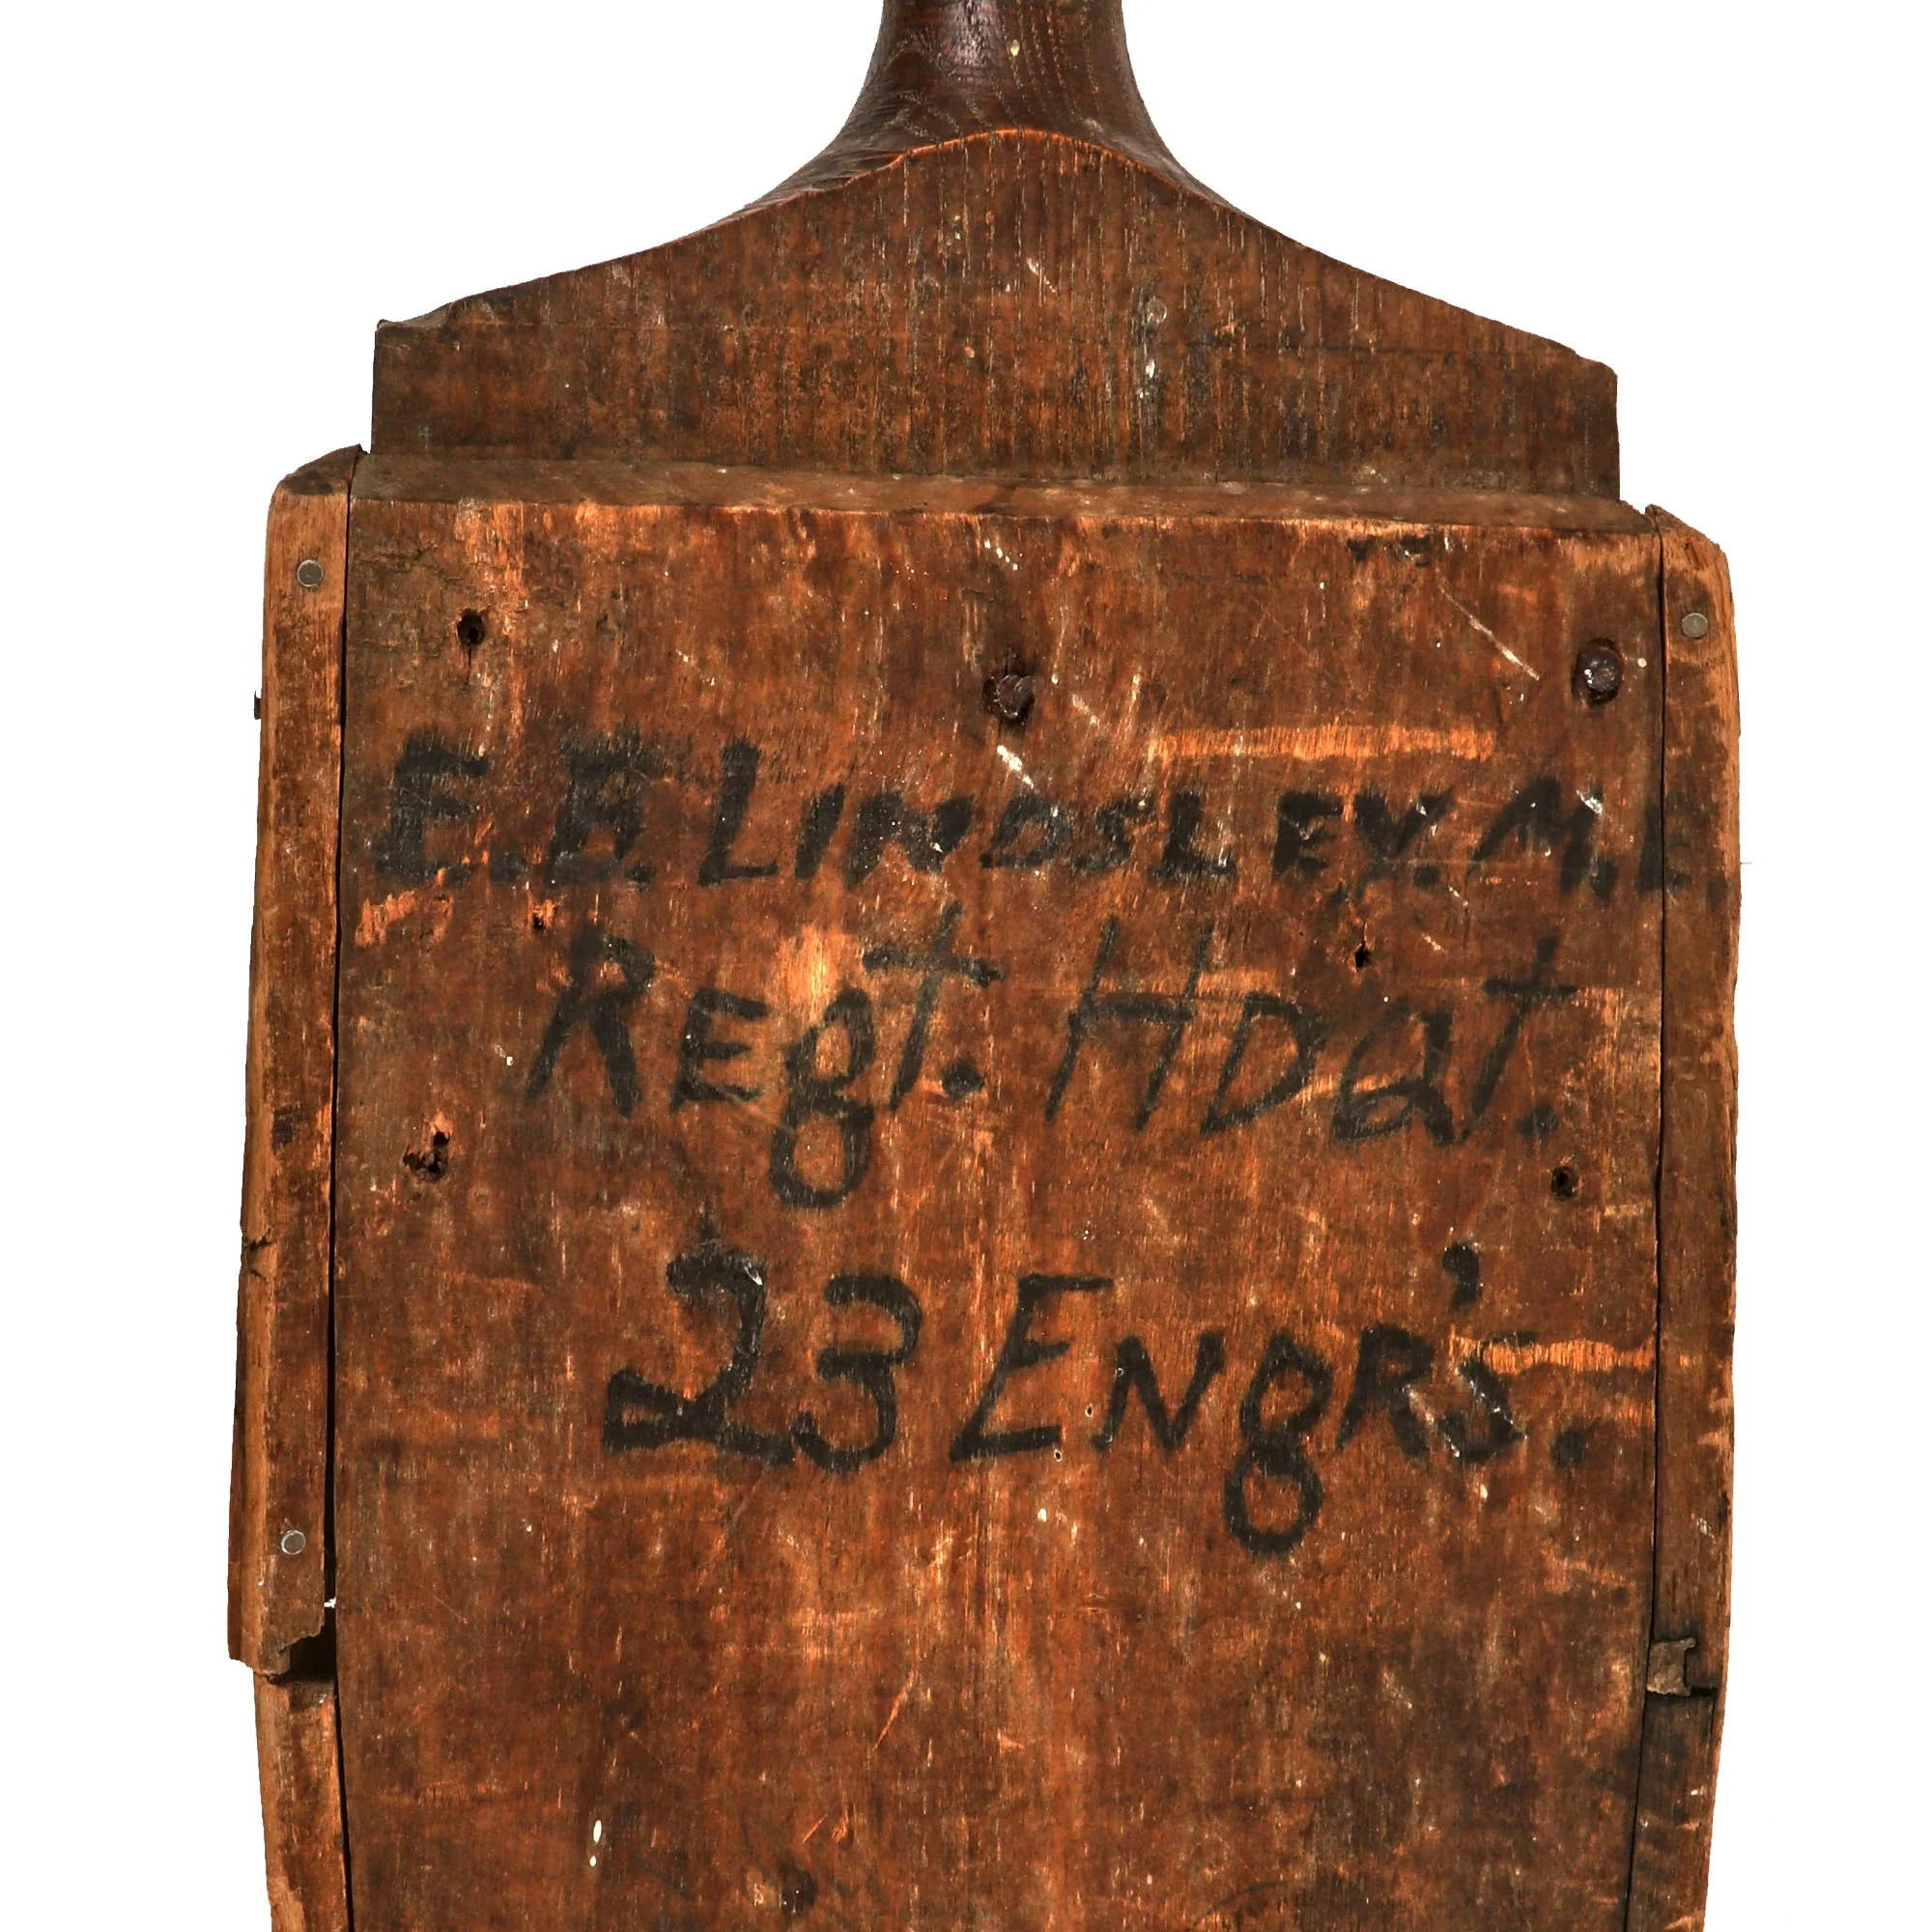 E.B. LINDSLEY. M.E.
REgT. HDQT.
23 ENgR'S.